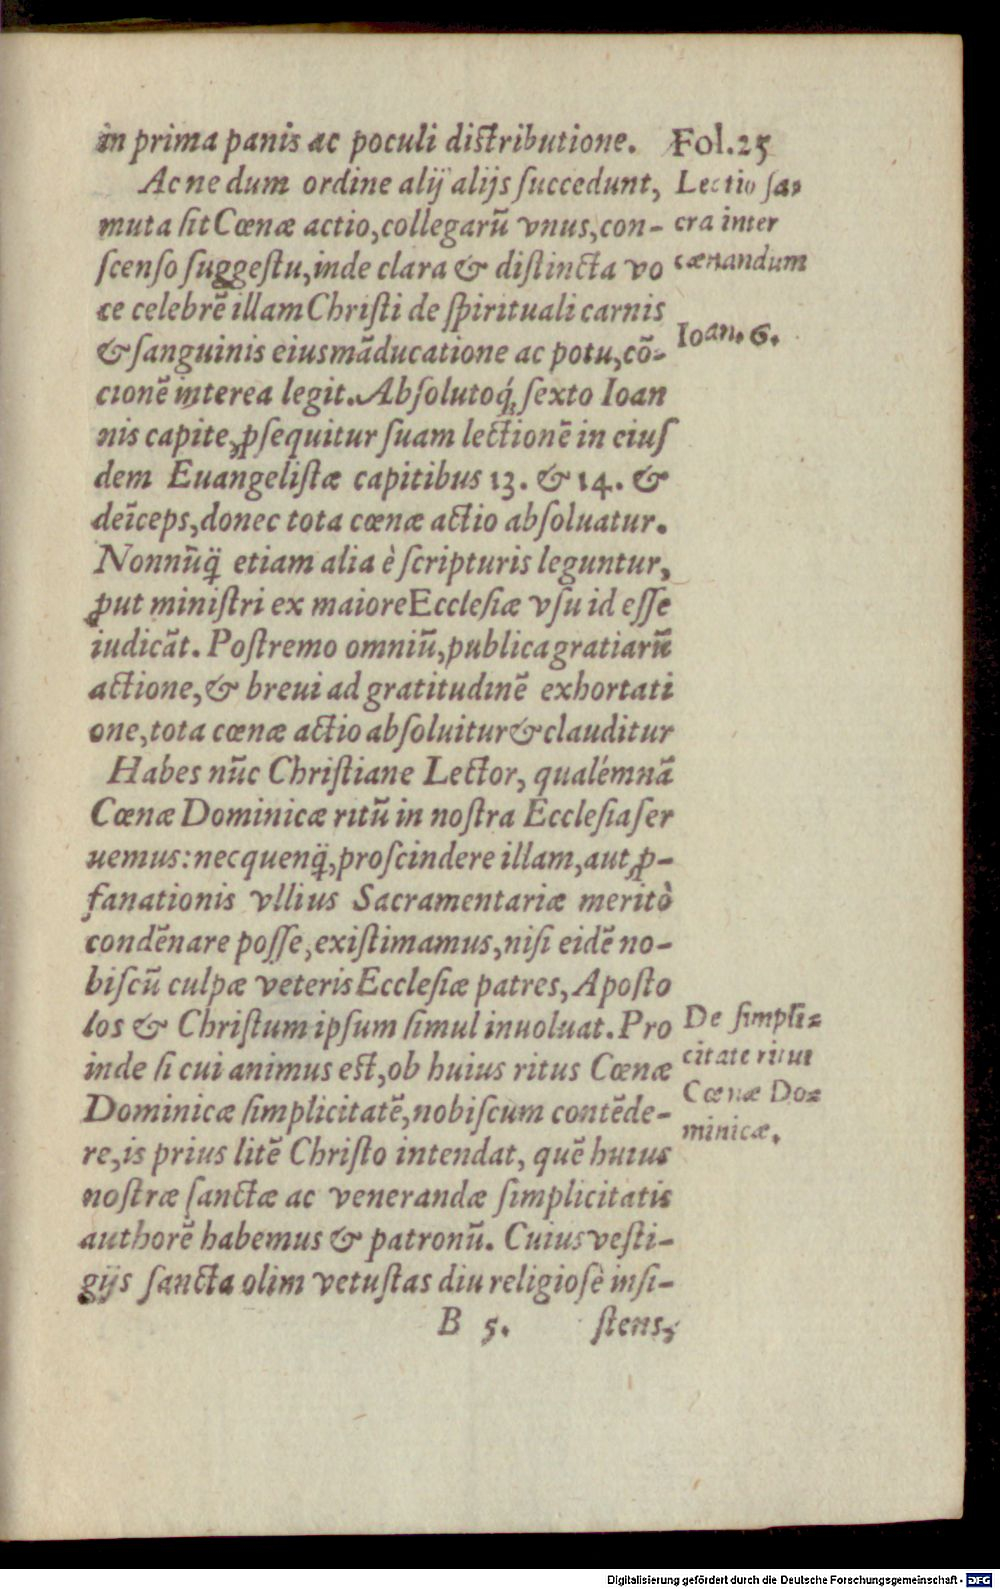 in prima panis ac poculi distributione. Fol.25
Ac ne dum ordine alij alijs ſuccedunt,
muta ſit Cœnæ actio, collegarũ vnus, con-
ſcenſo ſuggeſtu, inde clara & diſtincta vo
ce celebrẽ illam Chriſti de ſpirituali carnis
& ſanguinis eius mãducatione ac potu, cõ-
cionẽ interea legit. Abſolutoq́; ſexto Ioan
nis capite, ꝓſequitur ſuam lectionẽ in eiuſ
dem Euangeliſtæ capitibus 13. & 14. &
deĩceps, donec tota cœnæ actio abſoluatur.
Nonnũq̃ etiam alia è ſcripturis leguntur,
ꝓut miniſtri ex maiore Eccleſiæ vſu id eſſe
iudicãt. Poſtremo omniũ, publica gratiarũ
actione, & breui ad gratitudinẽ exhortati
one, tota cœnæ actio abſoluitur & clauditur
Habes nũc Chriſtiane Lector, qualémnã
Cœnæ Dominicæ ritũ in noſtra Eccleſia ſer
uemus: nec quenq̃, proſcindere illam, aut ꝓ-
fanationis vllius Sacramentariæ meritò
condẽnare poſſe, exiſtimamus, niſi eidẽ no-
biſcũ culpæ veteris Eccleſiæ patres, Apoſto
los & Chriſtum ipſum ſimul inuoluat. Pro
inde ſi cui animus eſt, ob huius ritus Cœnæ
Dominicæ ſimplicitatẽ, nobiſcum contẽde-
re, is prius litẽ Chriſto intendat, quẽ huius
noſtræ ſanctæ ac venerandæ ſimplicitatis
authorẽ habemus & patronũ. Cuius veſti-
gijs ſancta olim vetuſtas diu religioſè inſi-
B 5. ſtens,
Lectio ſa-
cra inter
cœnandum
Ioan. 6.
De ſimpli-
citate ritus
Cœnæ Do-
minicæ.
Digitalisierung gefördert durch die Deutsche Forschungsgemeinschaft - DFG